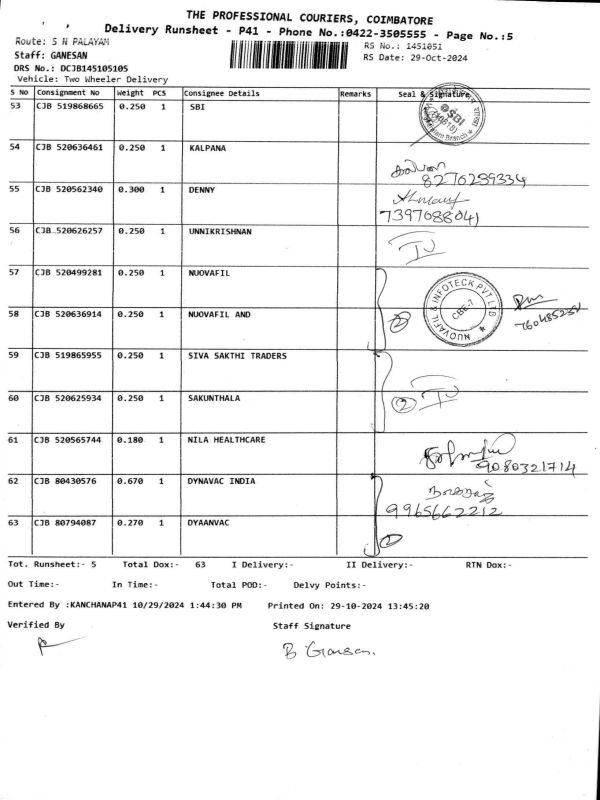 THE PROFESSIONAL COURIERS, COIMBATORE
Delivery Runsheet - P41 - Phone No.:0422-3505555 - Page No.:5
Route: S N PALAYAM
RS No.: 1451051
Staff: GANESAN
RS Date: 29-Oct-2024
DRS No.: DCJB145105105
Vehicle: Two Wheeler Delivery
S No Consignment No Weight PCS Consignee Details Remarks Seal & Signature
53 CJB 519868665 0.250 1 SBI
SBI
Branch
54 CJB 520636461 0.250 1 KALPANA
கல்பனா
8270289334
55 CJB 520562340 0.300 1 DENNY
7397088041
56 CJB 520626257 0.250 1 UNNIKRISHNAN
57 CJB 520499281 0.250 1 NUOVAFIL
NUOVAFIL & INFOTECK PVT LTD
CBE-7
58 CJB 520636914 0.250 1 NUOVAFIL AND
2
59 CJB 519865955 0.250 1 SIVA SAKTHI TRADERS
60 CJB 520625934 0.250 1 SAKUNTHALA
2
61 CJB 520565744 0.180 1 NILA HEALTHCARE
9080321714
62 CJB 80430576 0.670 1 DYNAVAC INDIA
9965662212
63 CJB 80794087 0.270 1 DYAANVAC
2
Tot. Runsheet:- 5 Total Dox:- 63 I Delivery:- II Delivery:- RTN Dox:-
Out Time:- In Time:- Total POD:- Delvy Points:-
Entered By :KANCHANAP41 10/29/2024 1:44:30 PM Printed On: 29-10-2024 13:45:20
Verified By Staff Signature
B Ganesan.